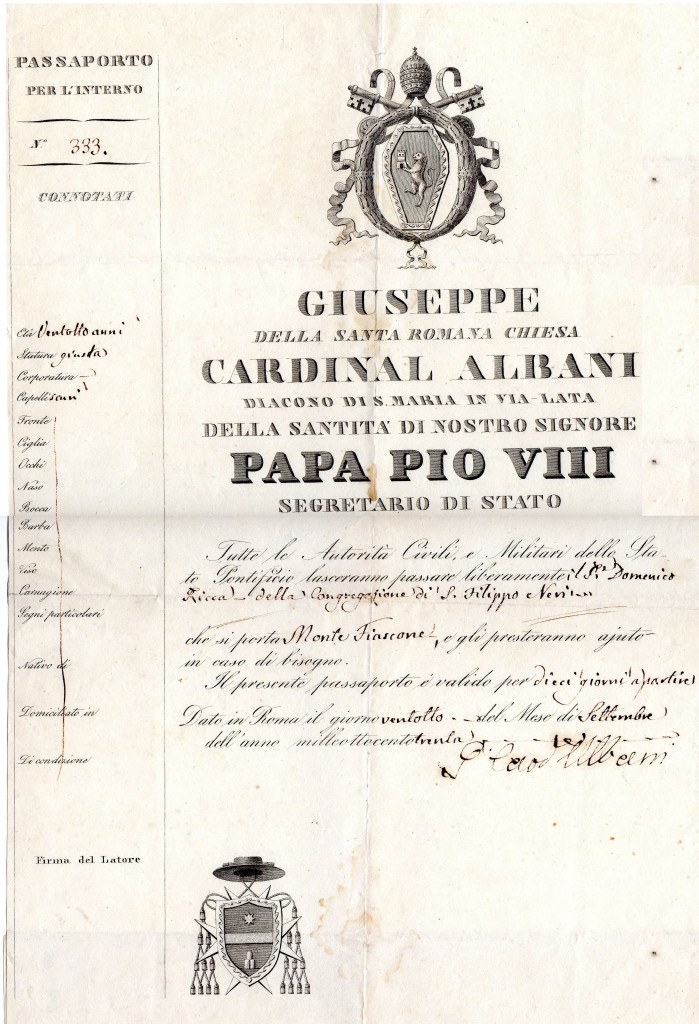 PASSAPORTO
PER L'INTERNO
N.° 333.
CONNOTATI
Età Ventotto anni
Statura giusta
Corporatura
Capelli scuri
Fronte
Ciglia
Occhi
Naso
Bocca
Barba
Mento
Viso
Carnagione
Segni particolari
Nativo di
Domiciliato in
Di condizione
Firma del Latore
GIUSEPPE
DELLA SANTA ROMANA CHIESA
CARDINAL ALBANI
DIACONO DI S. MARIA IN VIA-LATA
DELLA SANTITA' DI NOSTRO SIGNORE
PAPA PIO VIII
SEGRETARIO DI STATO
Tutte le Autorità Civili, e Militari dello Sta-
to Pontificio lasceranno passare liberamente il P. Domenico
Ricca della Congregazione di S. Filippo Neri
che si porta Monte Fiascone, e gli presteranno ajuto
in caso di bisogno.
Il presente passaporto è valido per dieci giorni a partire
Dato in Roma il giorno ventotto del Mese di Settembre
dell'anno milleottocentotrenta
Albani